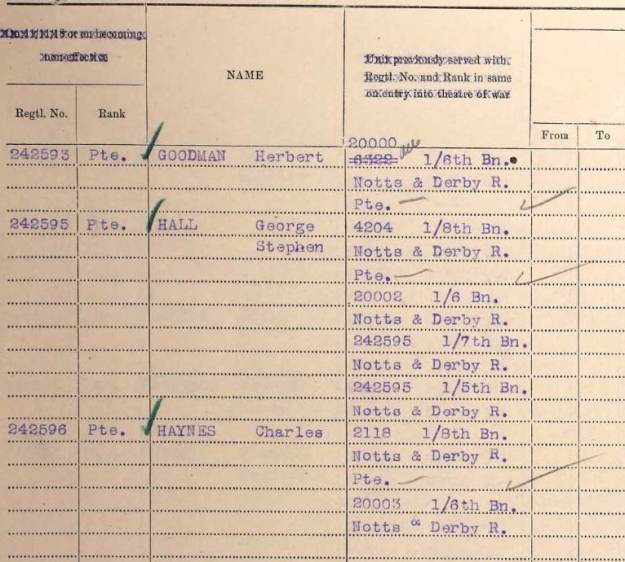 NAME
Unit previously served with.
Regtl. No. and Rank in same
on entry into theatre of war
Regtl. No. Rank
From To
20000
242593 Pte. GOODMAN Herbert 6322 1/6th Bn.
Notts & Derby R.
Pte.
242595 Pte. HALL George 4204 1/8th Bn.
Stephen Notts & Derby R.
Pte.
20002 1/6 Bn.
Notts & Derby R.
242595 1/7th Bn.
Notts & Derby R.
242595 1/5th Bn.
Notts & Derby R.
242596 Pte. HAYNES Charles 2118 1/8th Bn.
Notts & Derby R.
Pte.
20003 1/6th Bn.
Notts & Derby R.